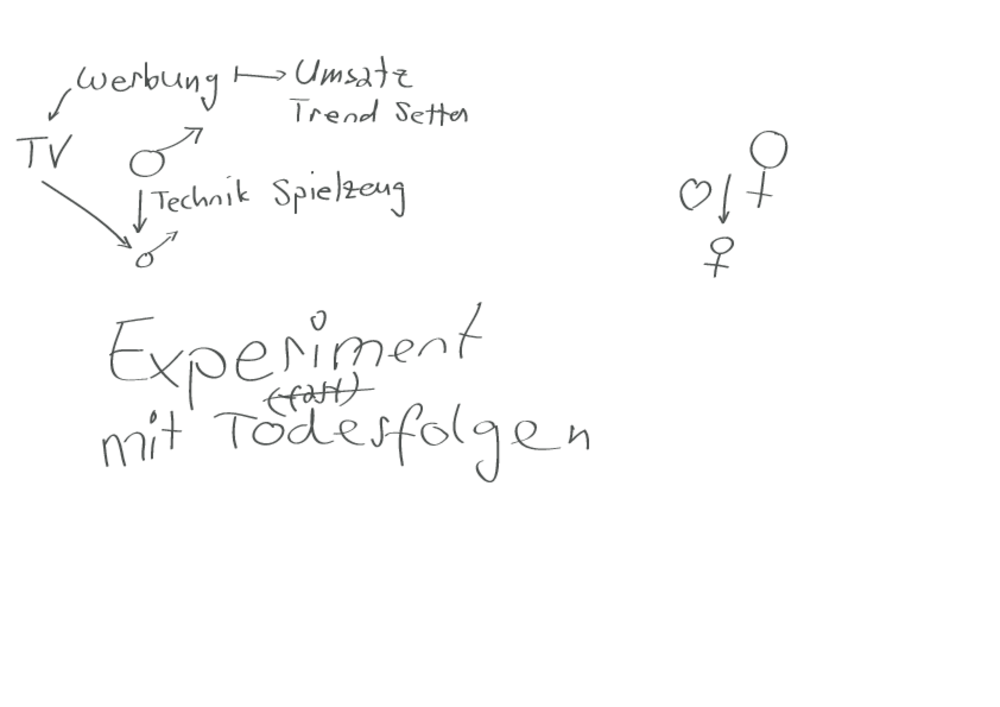 Werbung → Umsatz
Trend Setter
TV
Technik Spielzeug
Experiment
(fast)
mit Todesfolgen